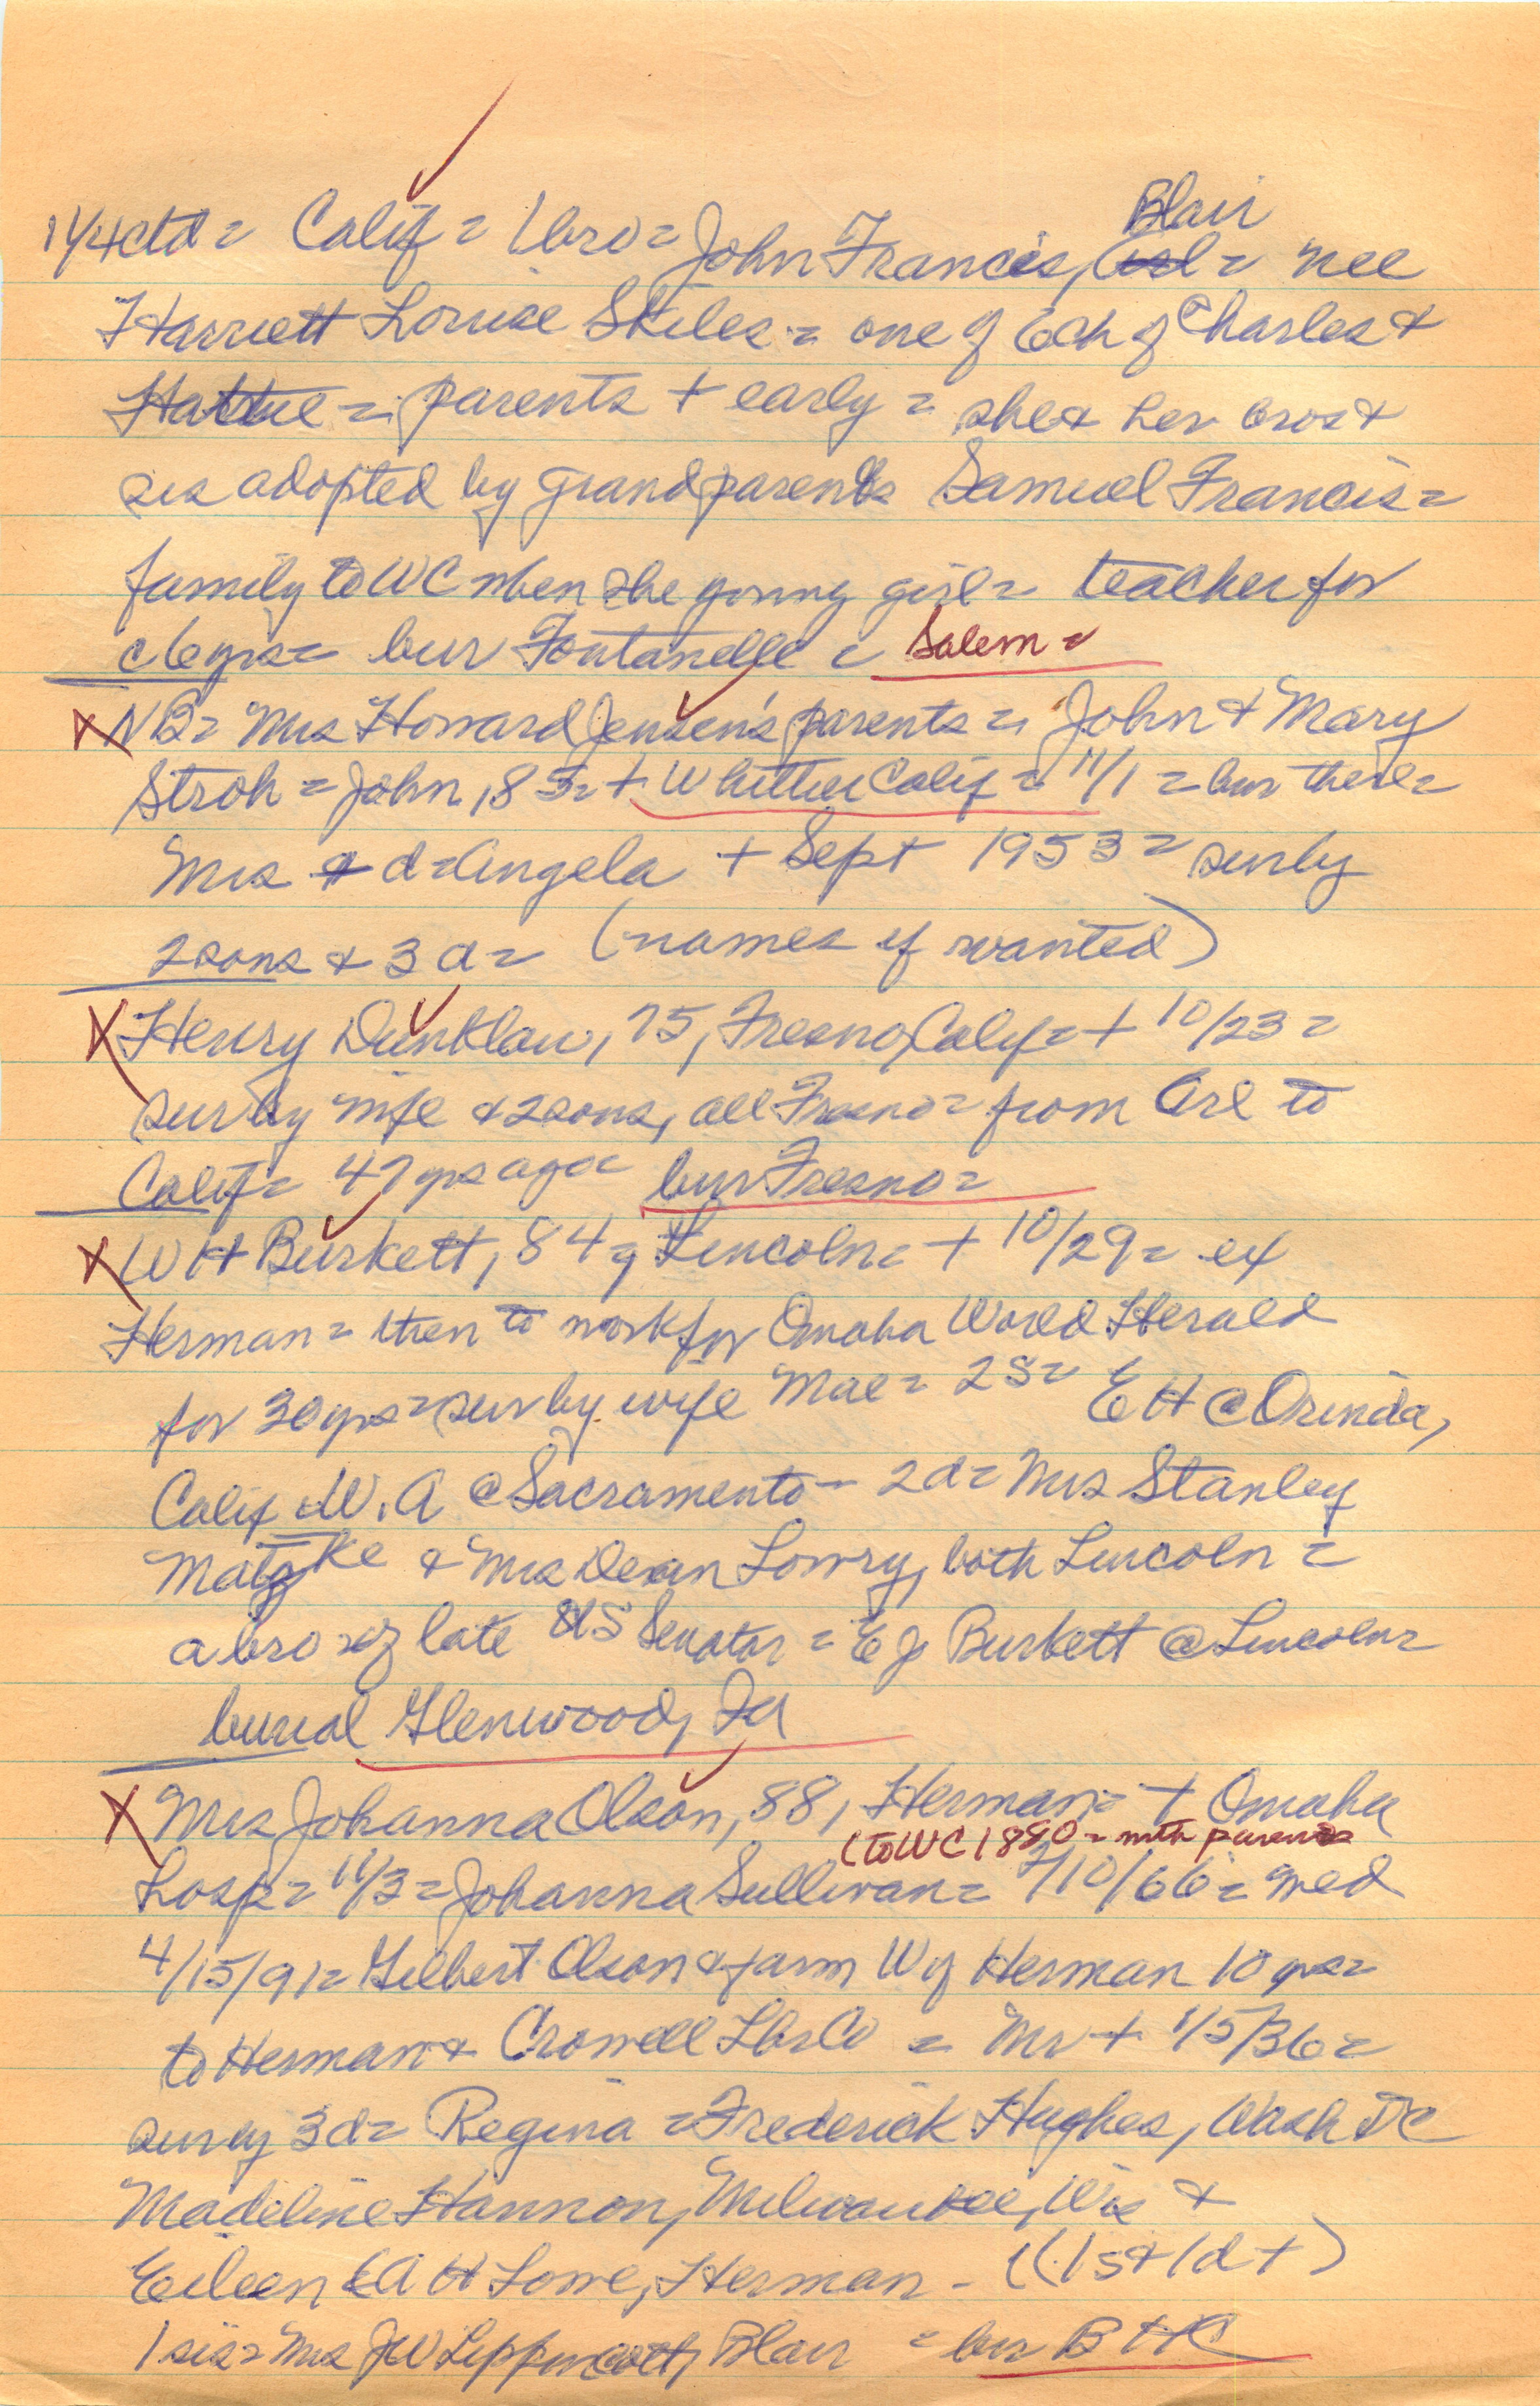 114ctd = Calif = 1 bro = John Francis, Blair = nee
Harriett Louise Skiles = one of 6 ch of Charles &
Hattie = parents + early = she & her bros &
sis adopted by grandparents Samuel Francis =
family to WC when she young girl = teacher for
c 6 yrs = bur Fontanelle = Salem =
X NB = Mrs Howard Jensen's parents = John & Mary
Stroh = John, 85 = + Whittier Calif = 11/1 = bur there =
Mrs & d = Angela + Sept 1953 = surby
2 sons & 3 d = (names if wanted)
X Henry Dunklau, 75, Fresno, Calif = + 10/23 =
surby wife & 2 sons, all Fresno = from Arl to
Calif = 47 yrs ago = bur Fresno =
X W H Burkett, 84, Lincoln = + 10/29 = ex
Herman = then to work for Omaha World Herald
for 30 yrs = surby wife Mae = 2 S = E H @ Orinda,
Calif & W. A @ Sacramento - 2 d = Mrs Stanley
Matzke & Mrs Dean Lowry, both Lincoln =
a bro of late US Senator = E J Burkett @ Lincoln =
burial Glenwood, Ia
X Mrs Johanna Olson, 88, Herman = + Omaha
(to WC 1880 = with parents
hosp = 11/3 = Johanna Sullivan = 2/10/66 = wed
4/15/91 = Gilbert Olson & farm W of Herman 10 yrs =
to Herman & Crowell Lbr Co = Mr + 1/5/36 =
surby 3 d = Regina = Frederick Hughes, Wash DC
Madeline Hannon, Milwaukee, Wis &
Eileen & A H Lowe, Herman - ((1 s & 1 d +)
1 sis = Mrs J W Lippincott, Blair = bur B + HC